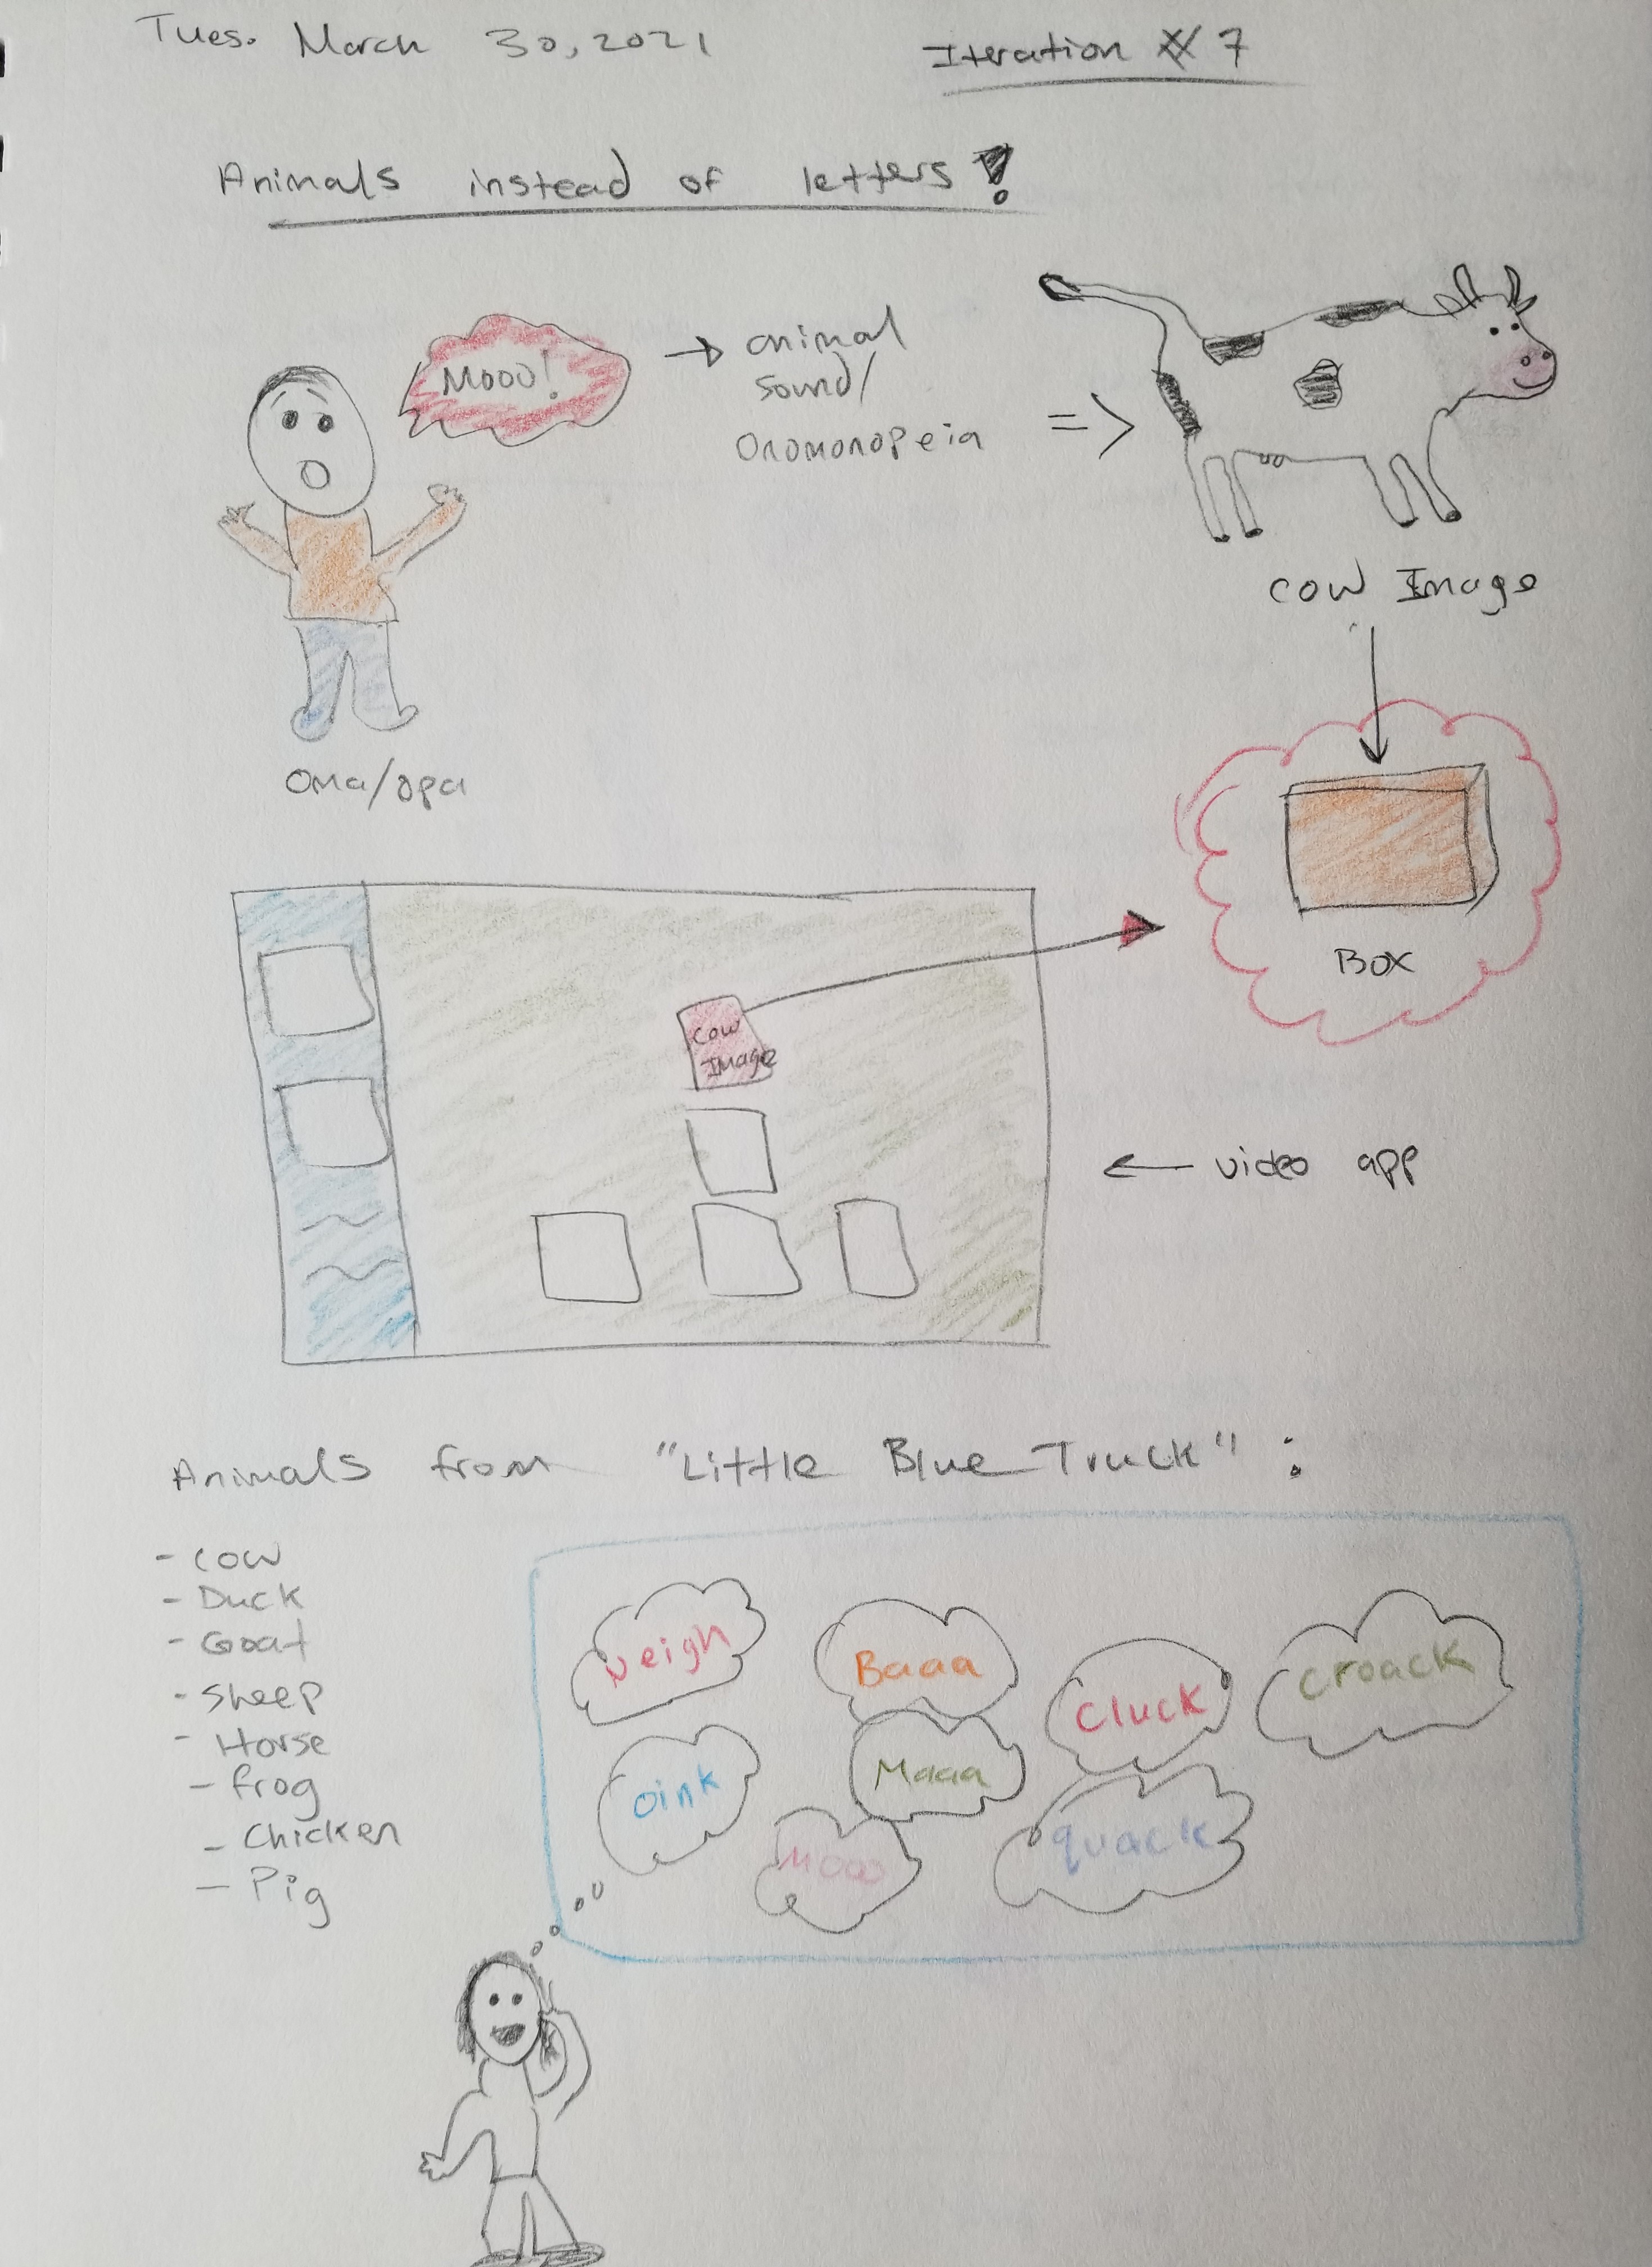 Tues. March 30, 2021
Iteration # 7
Animals instead of letters!
Mooo!
→ animal
sound/
Onomonopeia
=>
cow Image
Oma/opa
Box
Cow
Image
← video app
Animals from "Little Blue Truck":
- Cow
- Duck
- Goat
- Sheep
- Horse
- frog
- Chicken
- Pig
Neigh
Baaa
Cluck
Croack
oink
Maaa
Mooo
quack